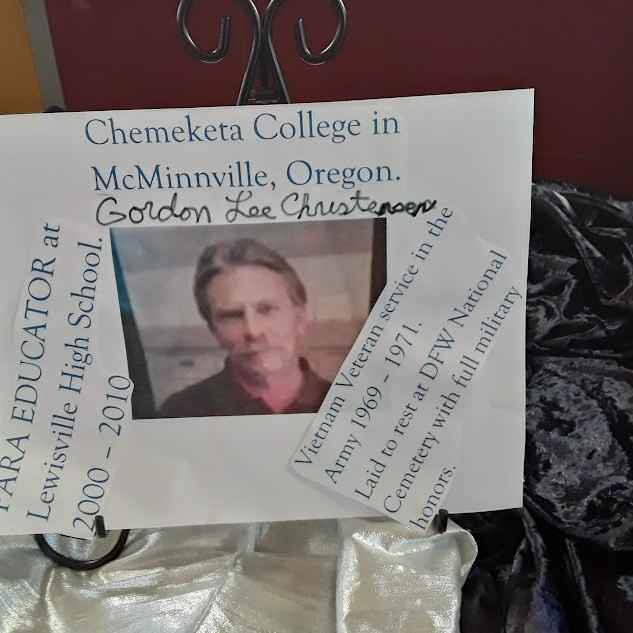 Chemeketa College in
McMinnville, Oregon.
Gordon Lee Christensen
PARA EDUCATOR at
Lewisville High School.
2000 - 2010
Vietnam Veteran service in the
Army 1969 - 1971.
Laid to rest at DFW National
Cemetery with full military
honors.